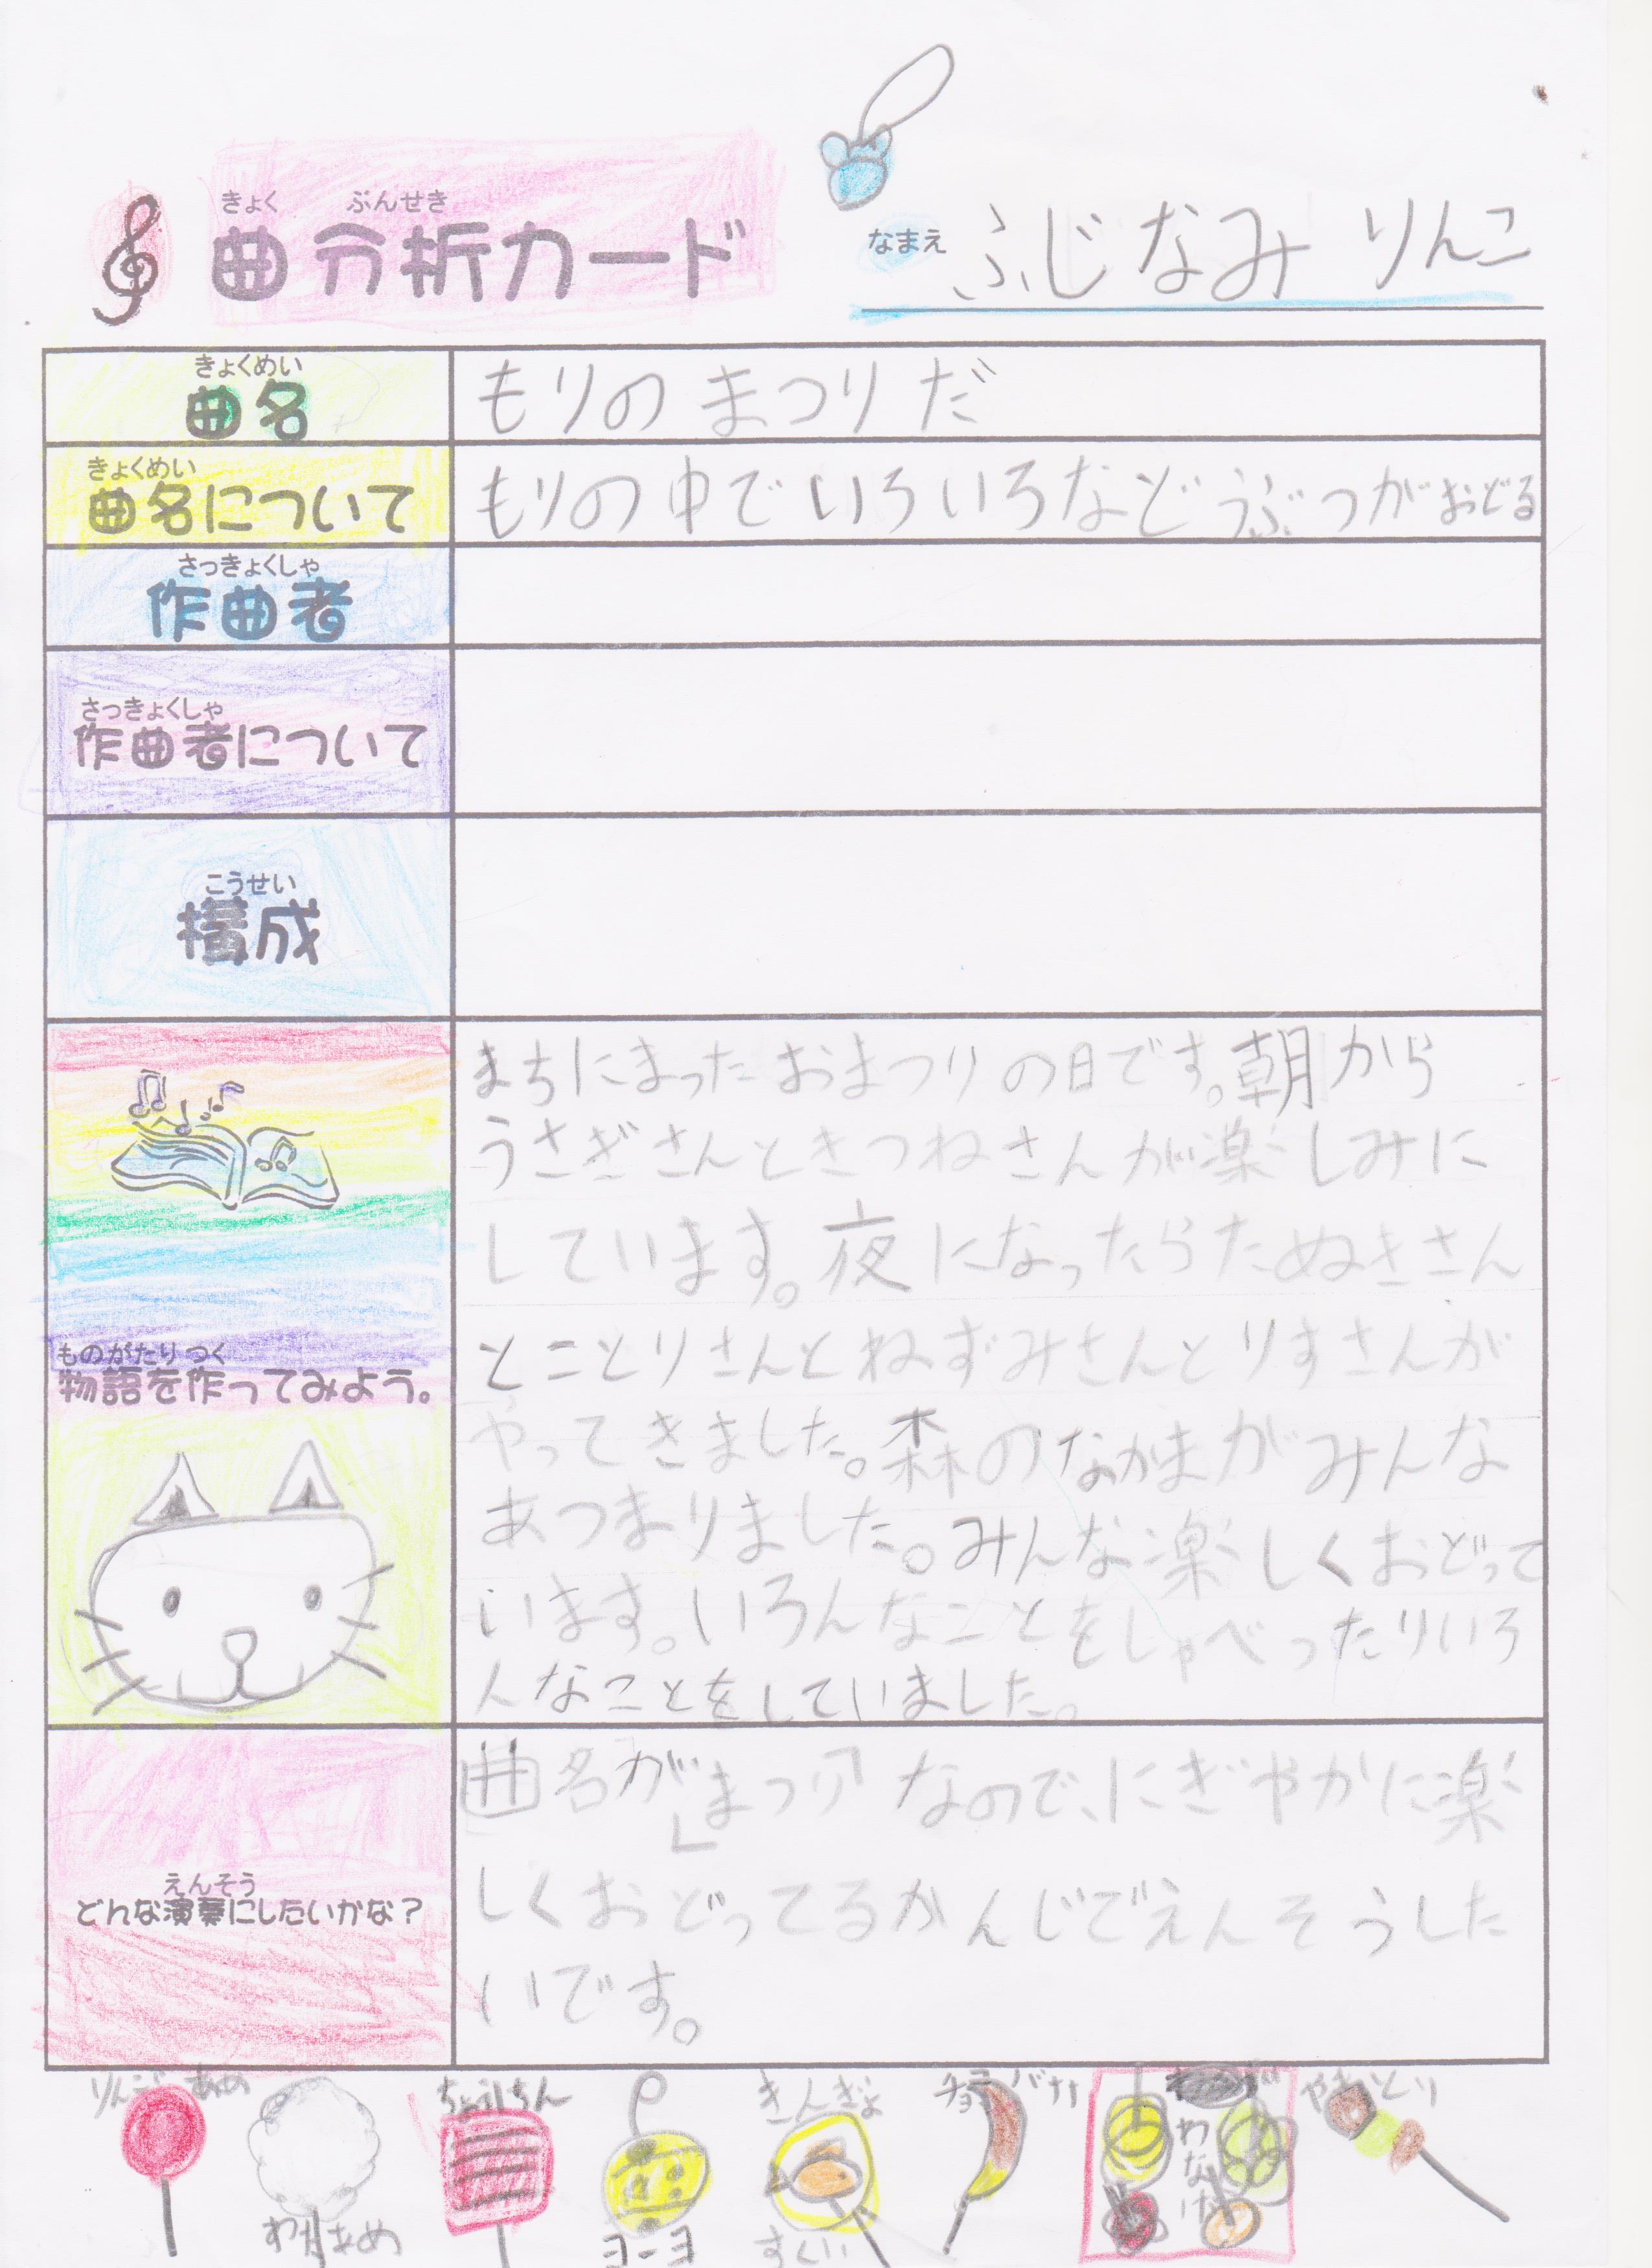 きょく ぶんせき
曲分析カード
なまえ ふじなみ りんこ
きょくめい
曲名
もりの まつりだ
きょくめい
曲名について
もりの中でいろいろなどうぶつがおどる
さっきょくしゃ
作曲者
さっきょくしゃ
作曲者について
こうせい
構成
ものがたり つく
物語を作ってみよう。
まちにまったおまつりの日です。朝から
うさぎさんときつねさんが楽しみに
しています。夜になったらたぬきさん
とことりさんとねずみさんとりすさんが
やってきました。森のなかまがみんな
あつまりました。みんな楽しくおどって
います。いろんなことをしゃべったりいろ
んなことをしていました。
えんそう
どんな演奏にしたいかな？
曲名が」まつり「なので、にぎやかに楽
しくおどってるかんじでえんそうした
いです。
りんごあめ
わたあめ
ちょうちん
ヨーヨ
きんぎょ
すくい
チョコバナナ
わなげ
やきとり